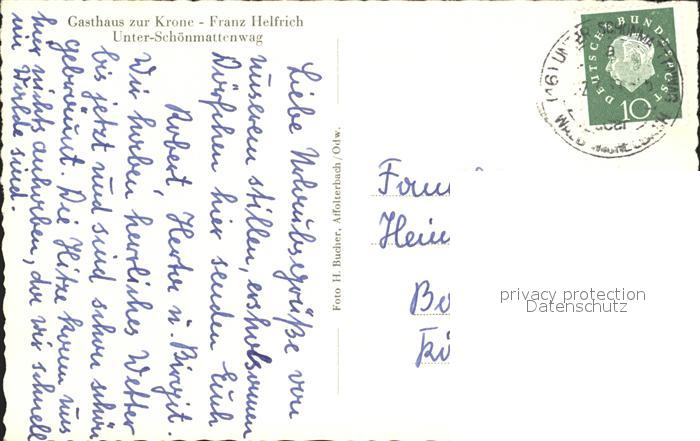 Gasthaus zur Krone - Franz Helfrich
Unter-Schönmattenwag
Liebe Urlaubsgrüße von
unserem stillen, erholsamen
Dörfchen hier senden Euch
Robert, Herta u. Birgit.
Wir haben herrliches Wetter
bis jetzt und sind schon schön
gebräunt. Die Hitze kann uns
hier nichts anhaben, da wir schnell
im Walde sind.
Foto H. Bucher, Affolterbach/Odw.
DEUTSCHE BUNDESPOST
10
(16) UNTER-SCHÖNMATTENWAG
Fam
Hein
Bo
privacy protection
Datenschutz